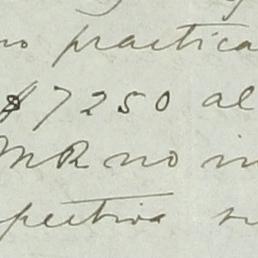 no practica
$7250 al
MR no in
pectiva su